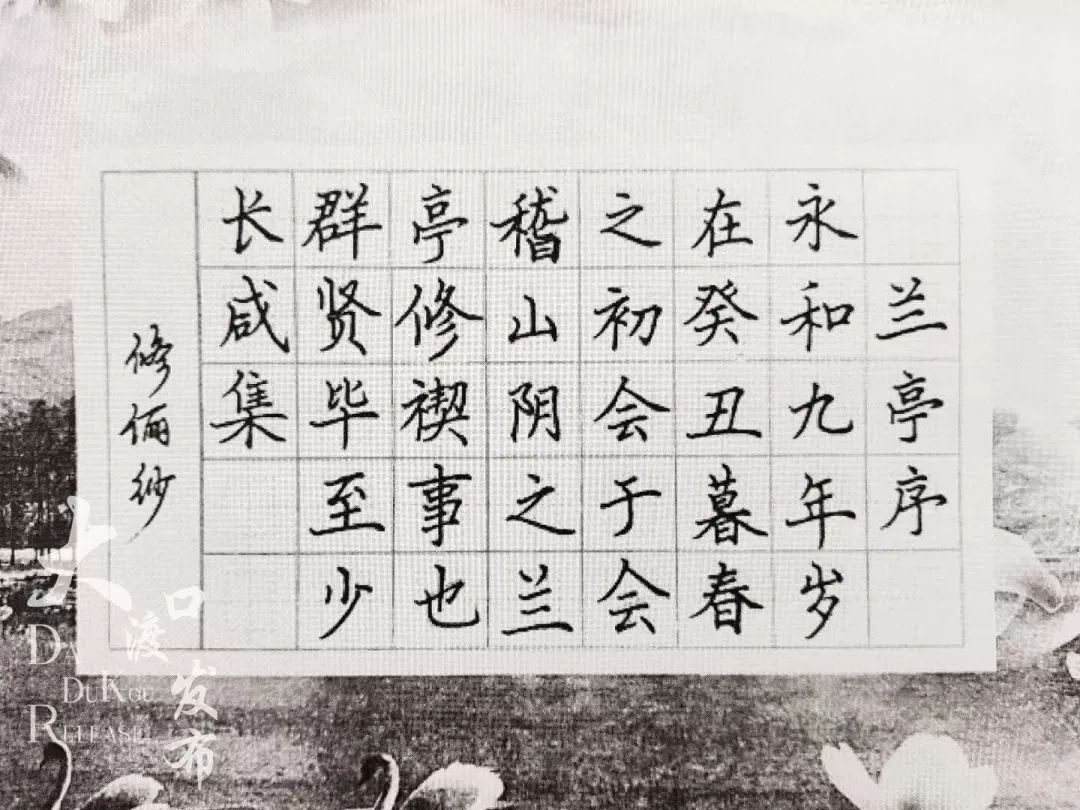 兰亭序
永和九年岁
在癸丑暮春
之初会于会
稽山阴之兰
亭修禊事也
群贤毕至少
长咸集
修俪纱
大渡口发布
DADUKOU
RELEASE